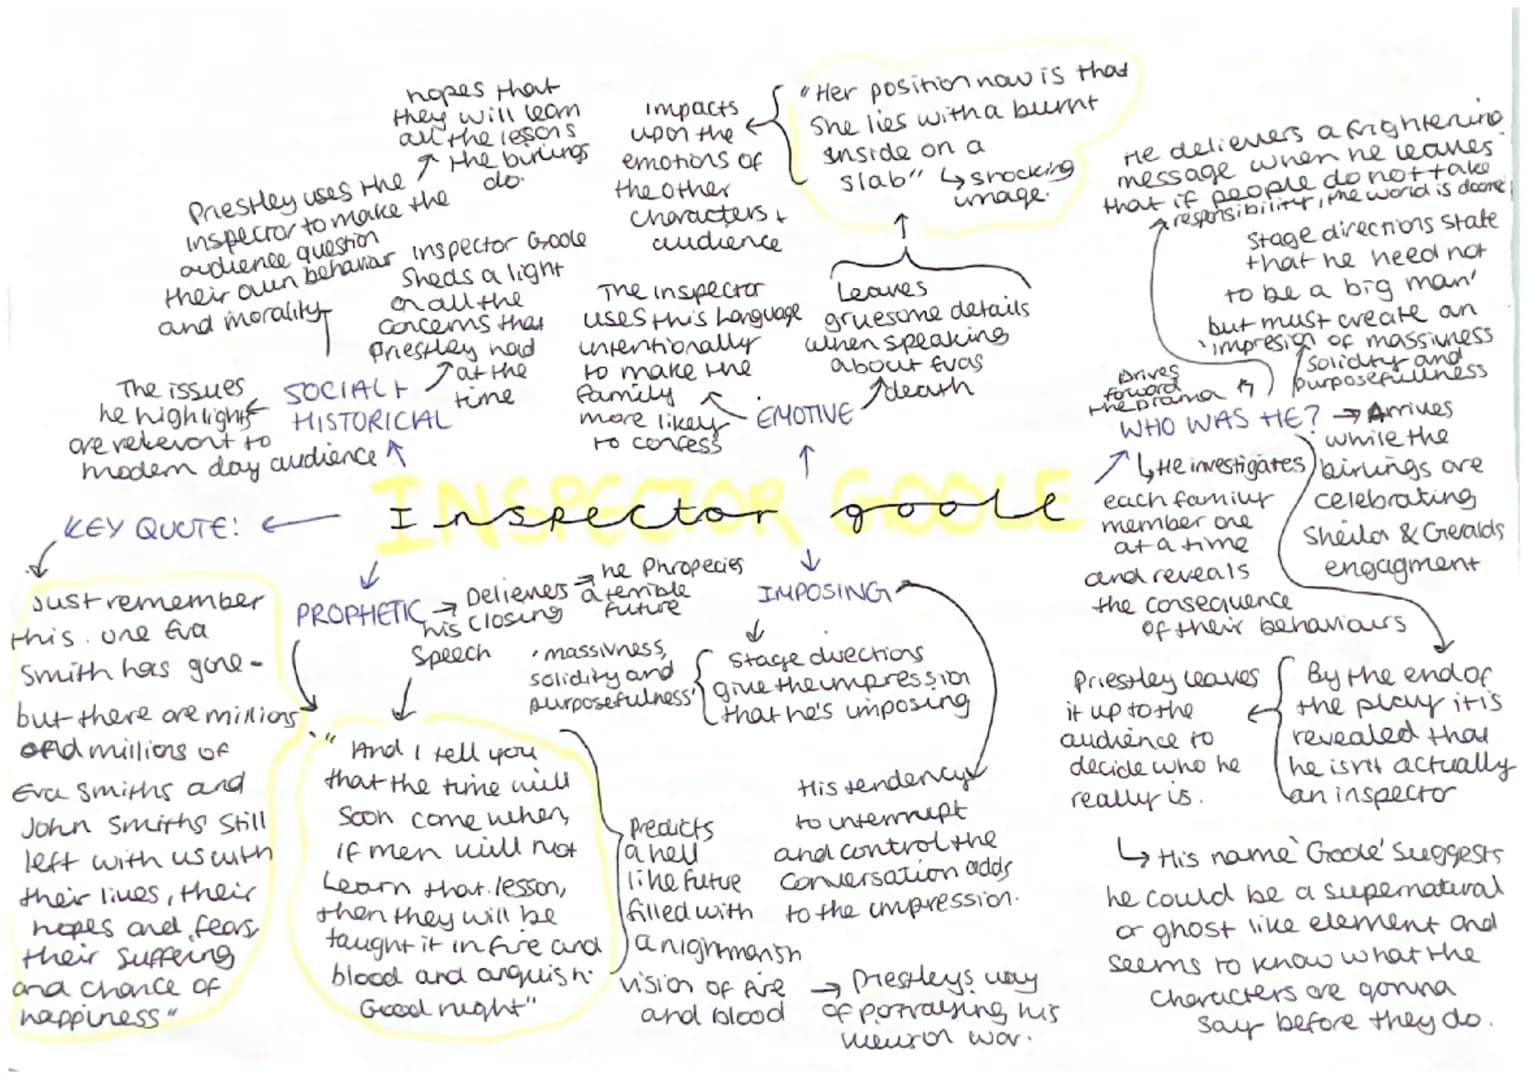 Inspector goole
INSPECTOR GOOLE
SOCIAL +
HISTORICAL
The issues
he highlights
are relevant to
modern day audience
Priestley uses the
inspector to make the
audience question
their own behaviar
and morality
hopes that
they will learn
all the lessons
the birlings
do.
inspector Goole
sheds a light
on all the
concerns that
Priestley had
at the
time
EMOTIVE
The inspector
uses this language
intentionally
to make the
family
more likely
to confess
Leaves
gruesome details
when speaking
about Evas
death
"Her position now is that
She lies with a burnt
inside on a
slab"
shocking
image.
impacts
upon the
emotions of
the other
characters +
audience
WHO WAS HE?
Drives
foward
the Drama
He delievers a frightening
message when he leaves
that if people do not take
responsibility, the world is doomed
Stage directions state
that he need not
to be a big man'
but must create an
'impresion of massiveness
solidity and
purposefullness
Arrives
while the
birlings are
celebrating
Sheila & Geralds
engagment
He investigates
each family
member one
at a time
and reveals
the consequence
of their behaviours
By the end of
the play it is
revealed that
he isn't actually
an inspector
Priestley leaves
it up to the
audience to
decide who he
really is.
His name 'Goole' suggests
he could be a supernatural
or ghost like element and
seems to know what the
characters are gonna
say before they do.
IMPOSING
Stage directions
give the impression
that he's imposing
'massivness,
solidity and
purposefulness'
His tendency
to interrupt
and control the
conversation adds
to the impression.
PROPHETIC
Delieves
his closing
speech
he Phropecies
a terrible
future
"And I tell you
that the time will
soon come when,
if men will not
learn that lesson,
then they will be
taught it in fire and
blood and anguish.
Good night"
Predicts
a hell
like future
filled with
a nightmarish
vision of fire
and blood
Priestleys way
of portraying his
view on war.
KEY QUOTE:
Just remember
this. one Eva
Smith has gone -
but there are millions
and millions of
Eva Smiths and
John Smiths still
left with us with
their lives, their
hopes and fears,
their suffering
and chance of
happiness"